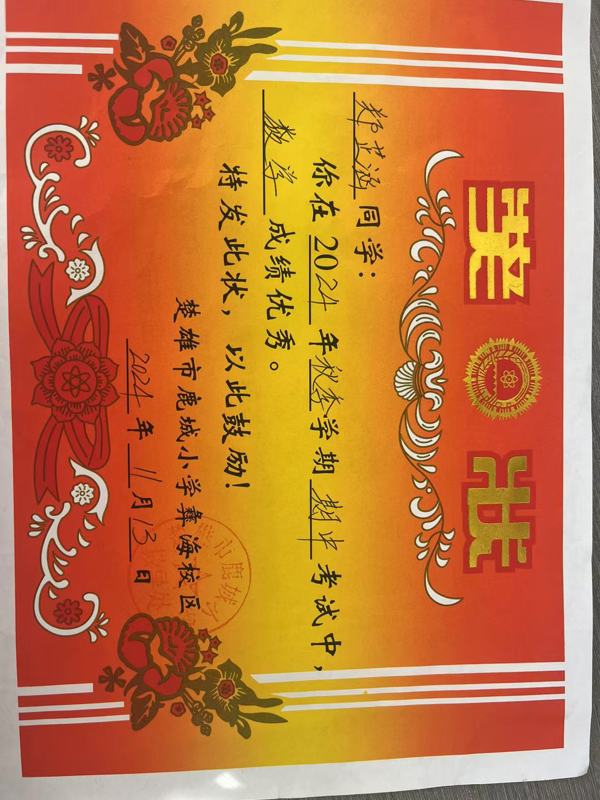 奖状
郑芷涵同学：
你在2024年秋季学期期中考试中，
数学成绩优秀。
特发此状，以此鼓励！
楚雄市鹿城小学彝海校区
2024年11月13日